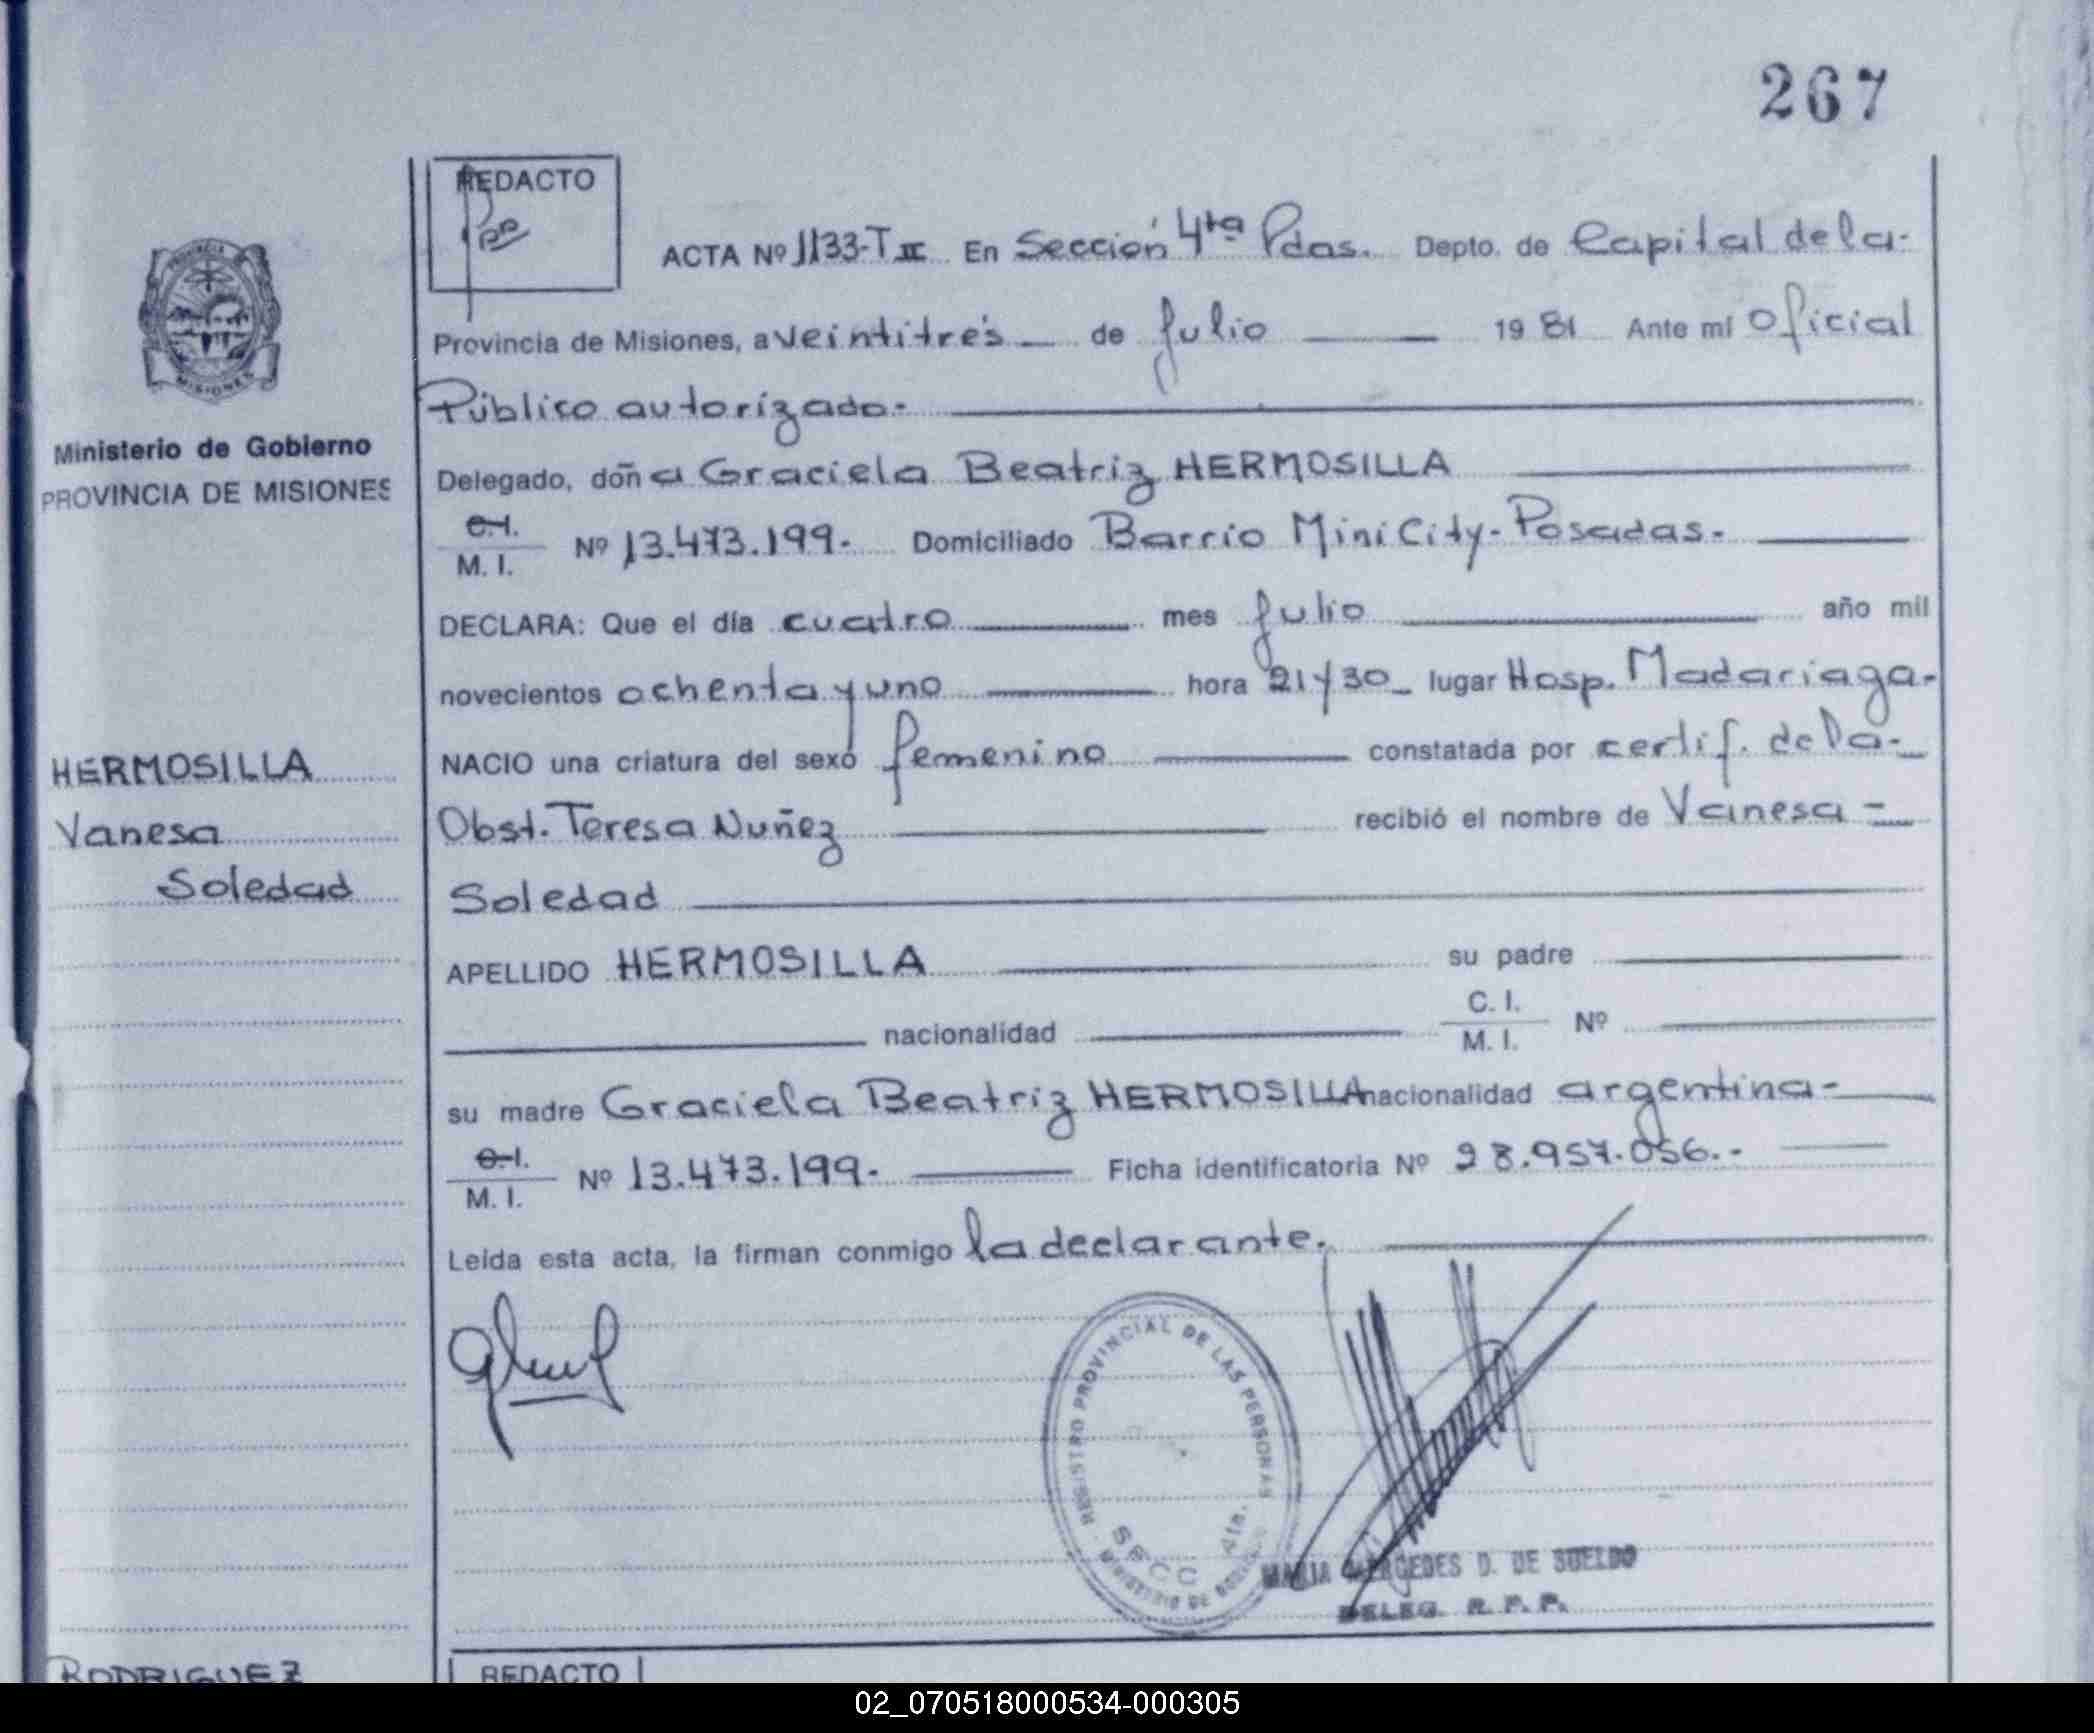 267
REDACTO
ACTA Nº 1133-T II En Sección 4ta Pdas. Depto. de Capital de la-
Provincia de Misiones, a veintitrés de Julio 1981 Ante mí Oficial
Público autorizado-
Delegado, doña Graciela Beatriz HERMOSILLA
C.I.
M. I. Nº 13.473.199. Domiciliado Barrio Mini City-Posadas.
DECLARA: Que el día cuatro mes Julio año mil
novecientos ochenta y uno hora 21 y 30 lugar Hosp. Madariaga.
NACIO una criatura del sexo femenino constatada por certif. de la-
Obst. Teresa Nuñez recibió el nombre de Vanesa =
Soledad
APELLIDO HERMOSILLA su padre
nacionalidad C. I.
M. I. Nº
su madre Graciela Beatriz HERMOSILLA nacionalidad argentina-
C.I.
M. I. Nº 13.473.199. Ficha identificatoria Nº 28.957.056.-
Leída esta acta, la firman conmigo la declarante.
PROVINCIA
MISIONES
Ministerio de Gobierno
PROVINCIA DE MISIONES
HERMOSILLA
Vanesa
Soledad
REGISTRO PROVINCIAL DE LAS PERSONAS
SECC 4ta.
MINISTERIO DE GOBIERNO
MARIA MERCEDES D. DE SUELDO
DELEG. R. P. P.
RODRIGUEZ
REDACTO
02_070518000534-000305